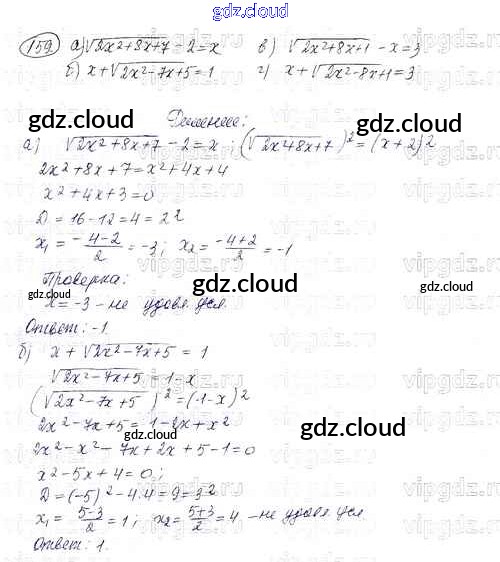 gdz.cloud
159 а) √2x²+8x+7 - 2 = x в) √2x²+8x+1 - x = 3
б) x + √2x²-7x+5 = 1 г) x + √2x²-8x+1 = 3
gdz.cloud Решение: gdz.cloud
а) √2x²+8x+7 - 2 = x ; (√2x+8x+7)² = (x+2)²
2x²+8x+7 = x²+4x+4
x²+4x+3 = 0
D = 16-12 = 4 = 2²
x₁ = -4-2/2 = -3; x₂ = -4+2/2 = -1
Проверка:
gdz.cloud gdz.cloud
x = -3 - не удовл. усл.
Ответ: -1.
б) x + √2x²-7x+5 = 1
√2x²-7x+5 = 1-x
(√2x²-7x+5)² = (1-x)²
2x²-7x+5 = 1-2x+x²
gdz.cloud gdz.cloud
2x²-x²-7x+2x+5-1=0
x²-5x+4=0;
D=(-5)²-4·4=9=3²
x₁ = 5-3/2 = 1; x₂ = 5+3/2 = 4 - не удовл. усл
Ответ: 1.
gdz.cloud